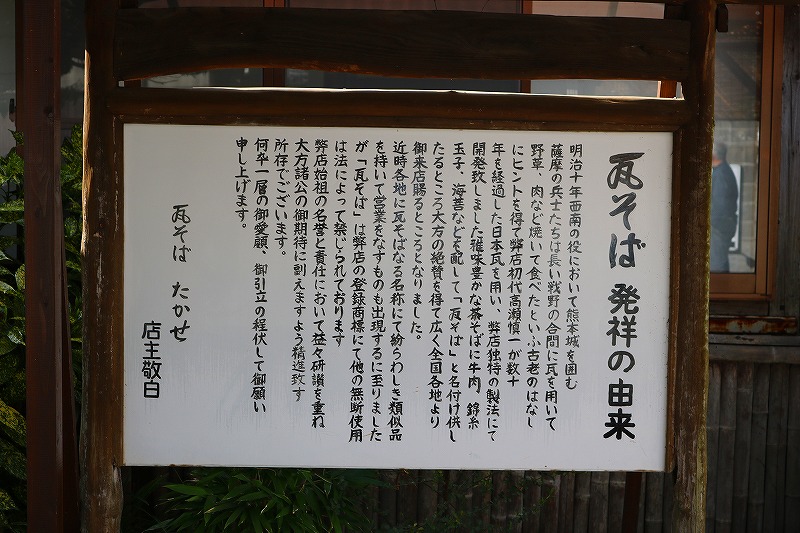 瓦そば 発祥の由来
明治十年西南の役において熊本城を囲む
薩摩の兵士たちは長い戦野の合間に瓦を用いて
野草、肉など焼いて食べたといふ古老のはなし
にヒントを得て弊店初代高瀬慎一が数十
年を経過した日本瓦を用い、弊店独特の製法にて
開発致しました雅味豊かな茶そばに牛肉、錦糸
玉子、海苔などを配して「瓦そば」と名付け供し
たるところ大方の絶賛を得て広く全国各地より
御来店賜るところとなりました。
近時各地に瓦そばなる名称にて紛らわしき類似品
を持いて営業をなすものも出現するに至りました
が「瓦そば」は弊店の登録商標にて他の無断使用
は法によって禁じられております
弊店始祖の名誉と責任において益々研鑽を重ね
大方諸公の御期待に副えますよう精進致す
所存でございます。
何卒一層の御愛顧、御引立の程伏して御願い
申し上げます。
瓦そば たかせ
店主敬白